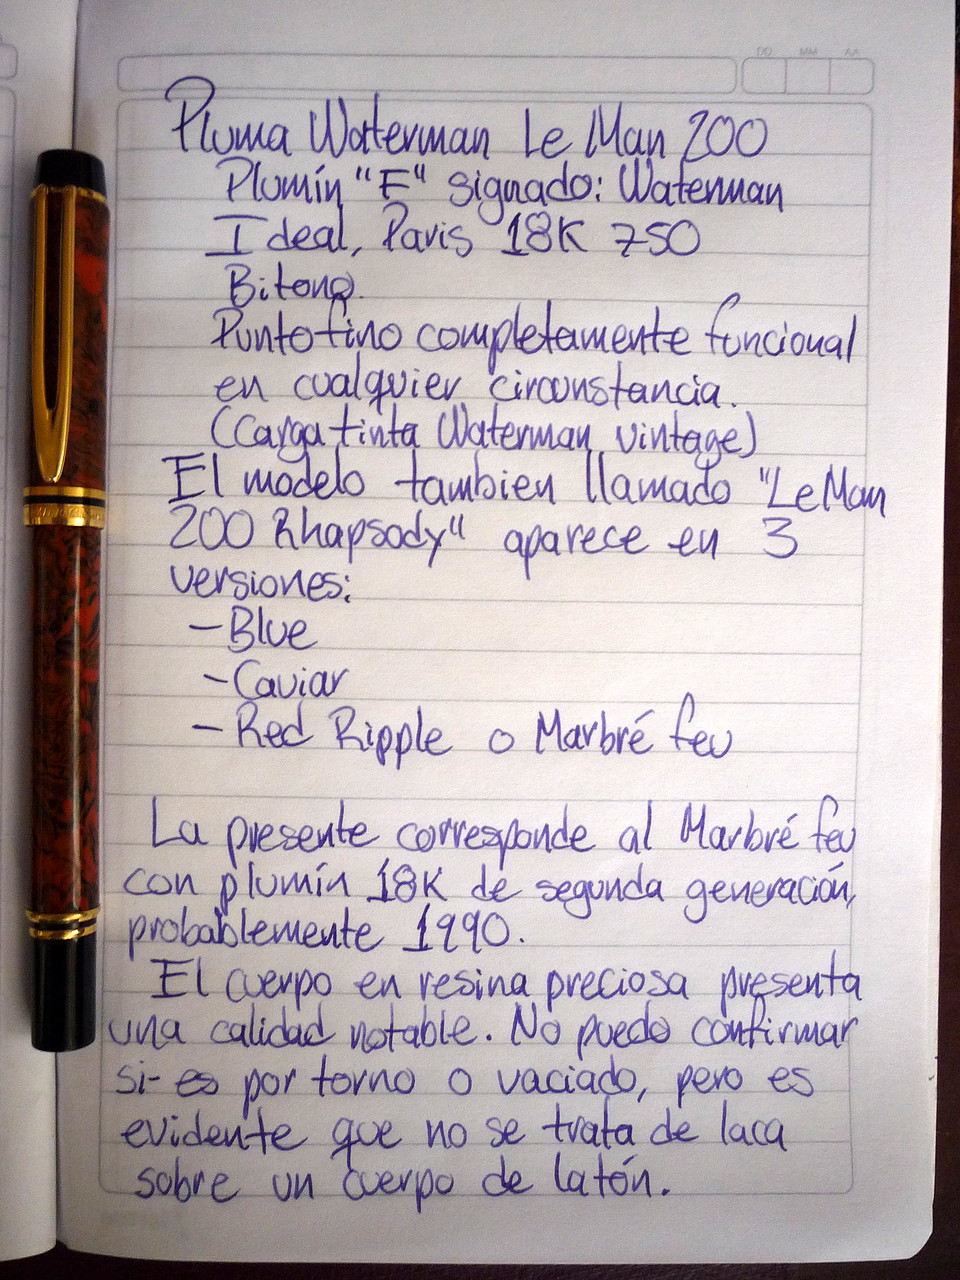 DD MM AA
Pluma Waterman Le Man 200
Plumín "F" signado: Waterman
Ideal, Paris 18K 750
Bitono.
Punto fino completamente funcional
en cualquier circunstancia.
(Carga tinta Waterman vintage)
El modelo tambien llamado "Le Man
200 Rhapsody" aparece en 3
versiones:
- Blue
- Caviar
- Red Ripple o Marbré feu
La presente corresponde al Marbré feu
con plumín 18K de segunda generación,
probablemente 1990.
El cuerpo en resina preciosa presenta
una calidad notable. No puedo confirmar
si es por torno o vaciado, pero es
evidente que no se trata de laca
sobre un cuerpo de latón.